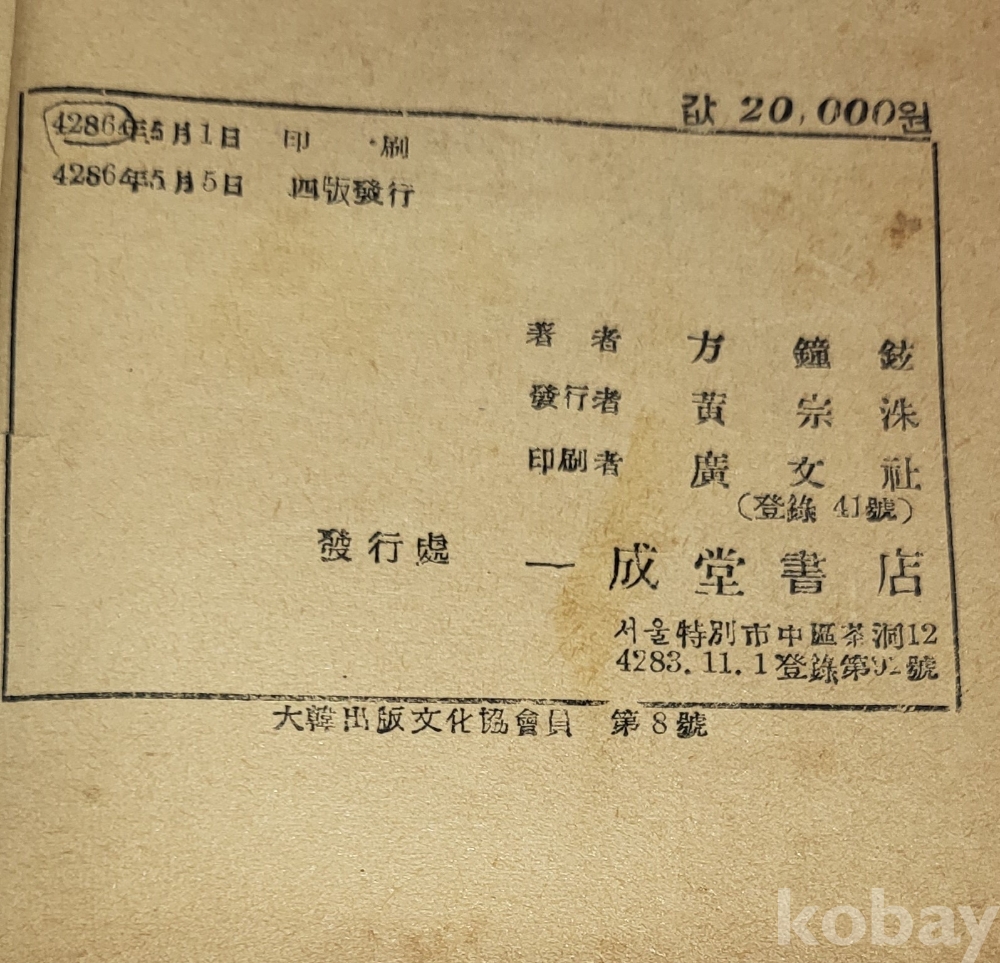 값 20,000원
4286年5月1日 印 刷
4286年5月5日 四版發行
著 者 方 鐘 鉉
發行者 黃 宗 洙
印刷者 廣 文 社
(登錄 41號)
發行處 一 成 堂 書 店
서울特別市中區茶洞12
4283.11.1登錄第92號
大韓出版文化協會員 第8號
kobay